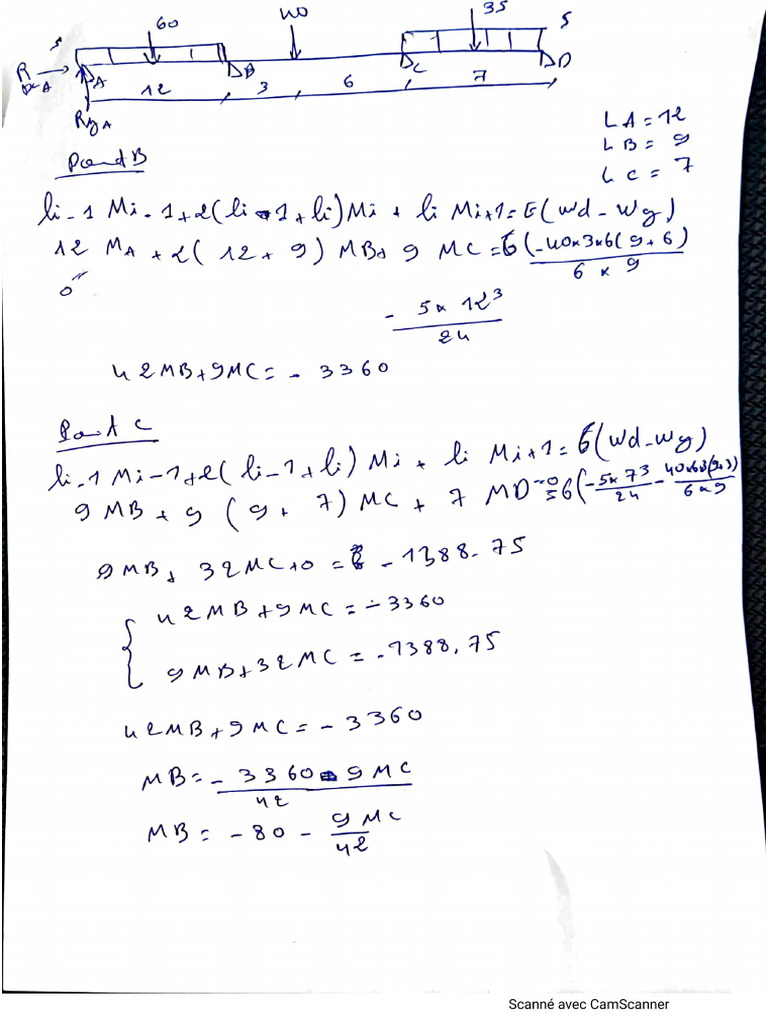 5 60 40 35 5
R x A A B C D
12 3 6 7
RyA
LA = 12
LB = 9
LC = 7
Point B
li-1 Mi-1 + 2(li-1 + li) Mi + li Mi+1 = 6(wd - wg)
12 MA + 2(12 + 9) MB + 9 MC = 6(-40x3x6(9+6)
6 x 9
0
- 5x 12³
24
42MB + 9MC = - 3360
Point C
li-1 Mi-1 + 2(li-1 + li) Mi + li Mi+1 = 6(wd - wg)
9 MB + 9 (9 + 7) MC + 7 MD = 0 = 6(-5x7³ - 40x6x3(9+3)
24 6x9
9MB + 32MC + 0 = - 1388.75
42MB + 9MC = - 3360
9MB + 32MC = - 1388,75
42MB + 9MC = - 3360
MB = - 3360 - 9MC
42
MB = - 80 - 9MC
42
Scanné avec CamScanner